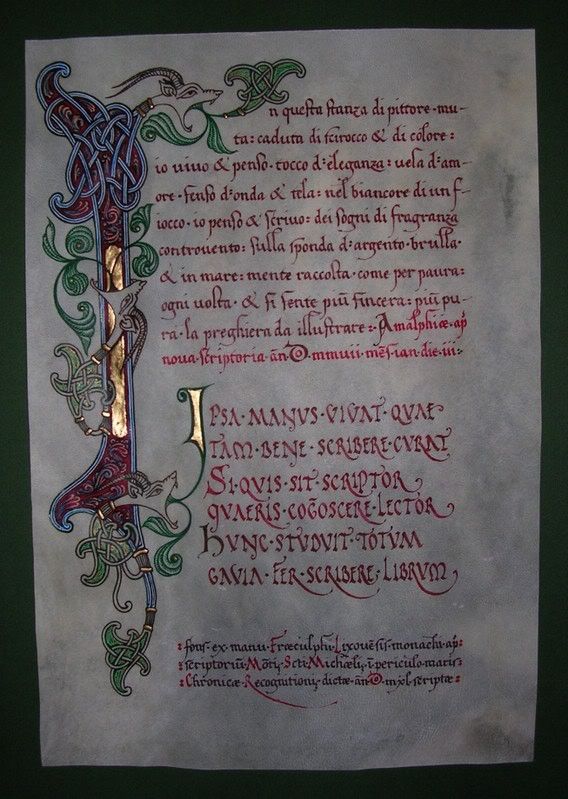 In questa stanza di pittore · mu-
ta: caduta di scirocco & di colore:
io vivo & penso · tocco d'eleganza: vela d'am-
ore · senso d'onda & tela: nel biancore di un f-
iocco · io penso & scrivo: dei sogni di fragranza
controvento: sulla sponda d'argento · brulla ·
& in mare: mente raccolta · come per paura:
ogni volta · & si sente più sincera: più pu-
ra · la preghiera da illustrare: Amalphiæ ap̄
nova · scriptoria · an̄ D · mmvii · mes̄ · ian · die · iii:
IPSA · MANUS · VIVAT · QUAE
TAM · BENE · SCRIBERE · CURAT
SI · QUIS · SIT · SCRIPTOR
QUAERIS · COGNOSCERE · LECTOR
HUNC · STUDUIT · TOTUM
GAUIA · FER · SCRIBERE · LIBRUM
: fons · ex · manu · Fræculphi · Lixovēsis · monachi · ap̄ :
: scriptoriū · Mōtis · Scti · Michælis · ī · periculo · maris :
: Chronicæ · Recognitionis · dictæ · an̄ D · mxl · scriptæ :